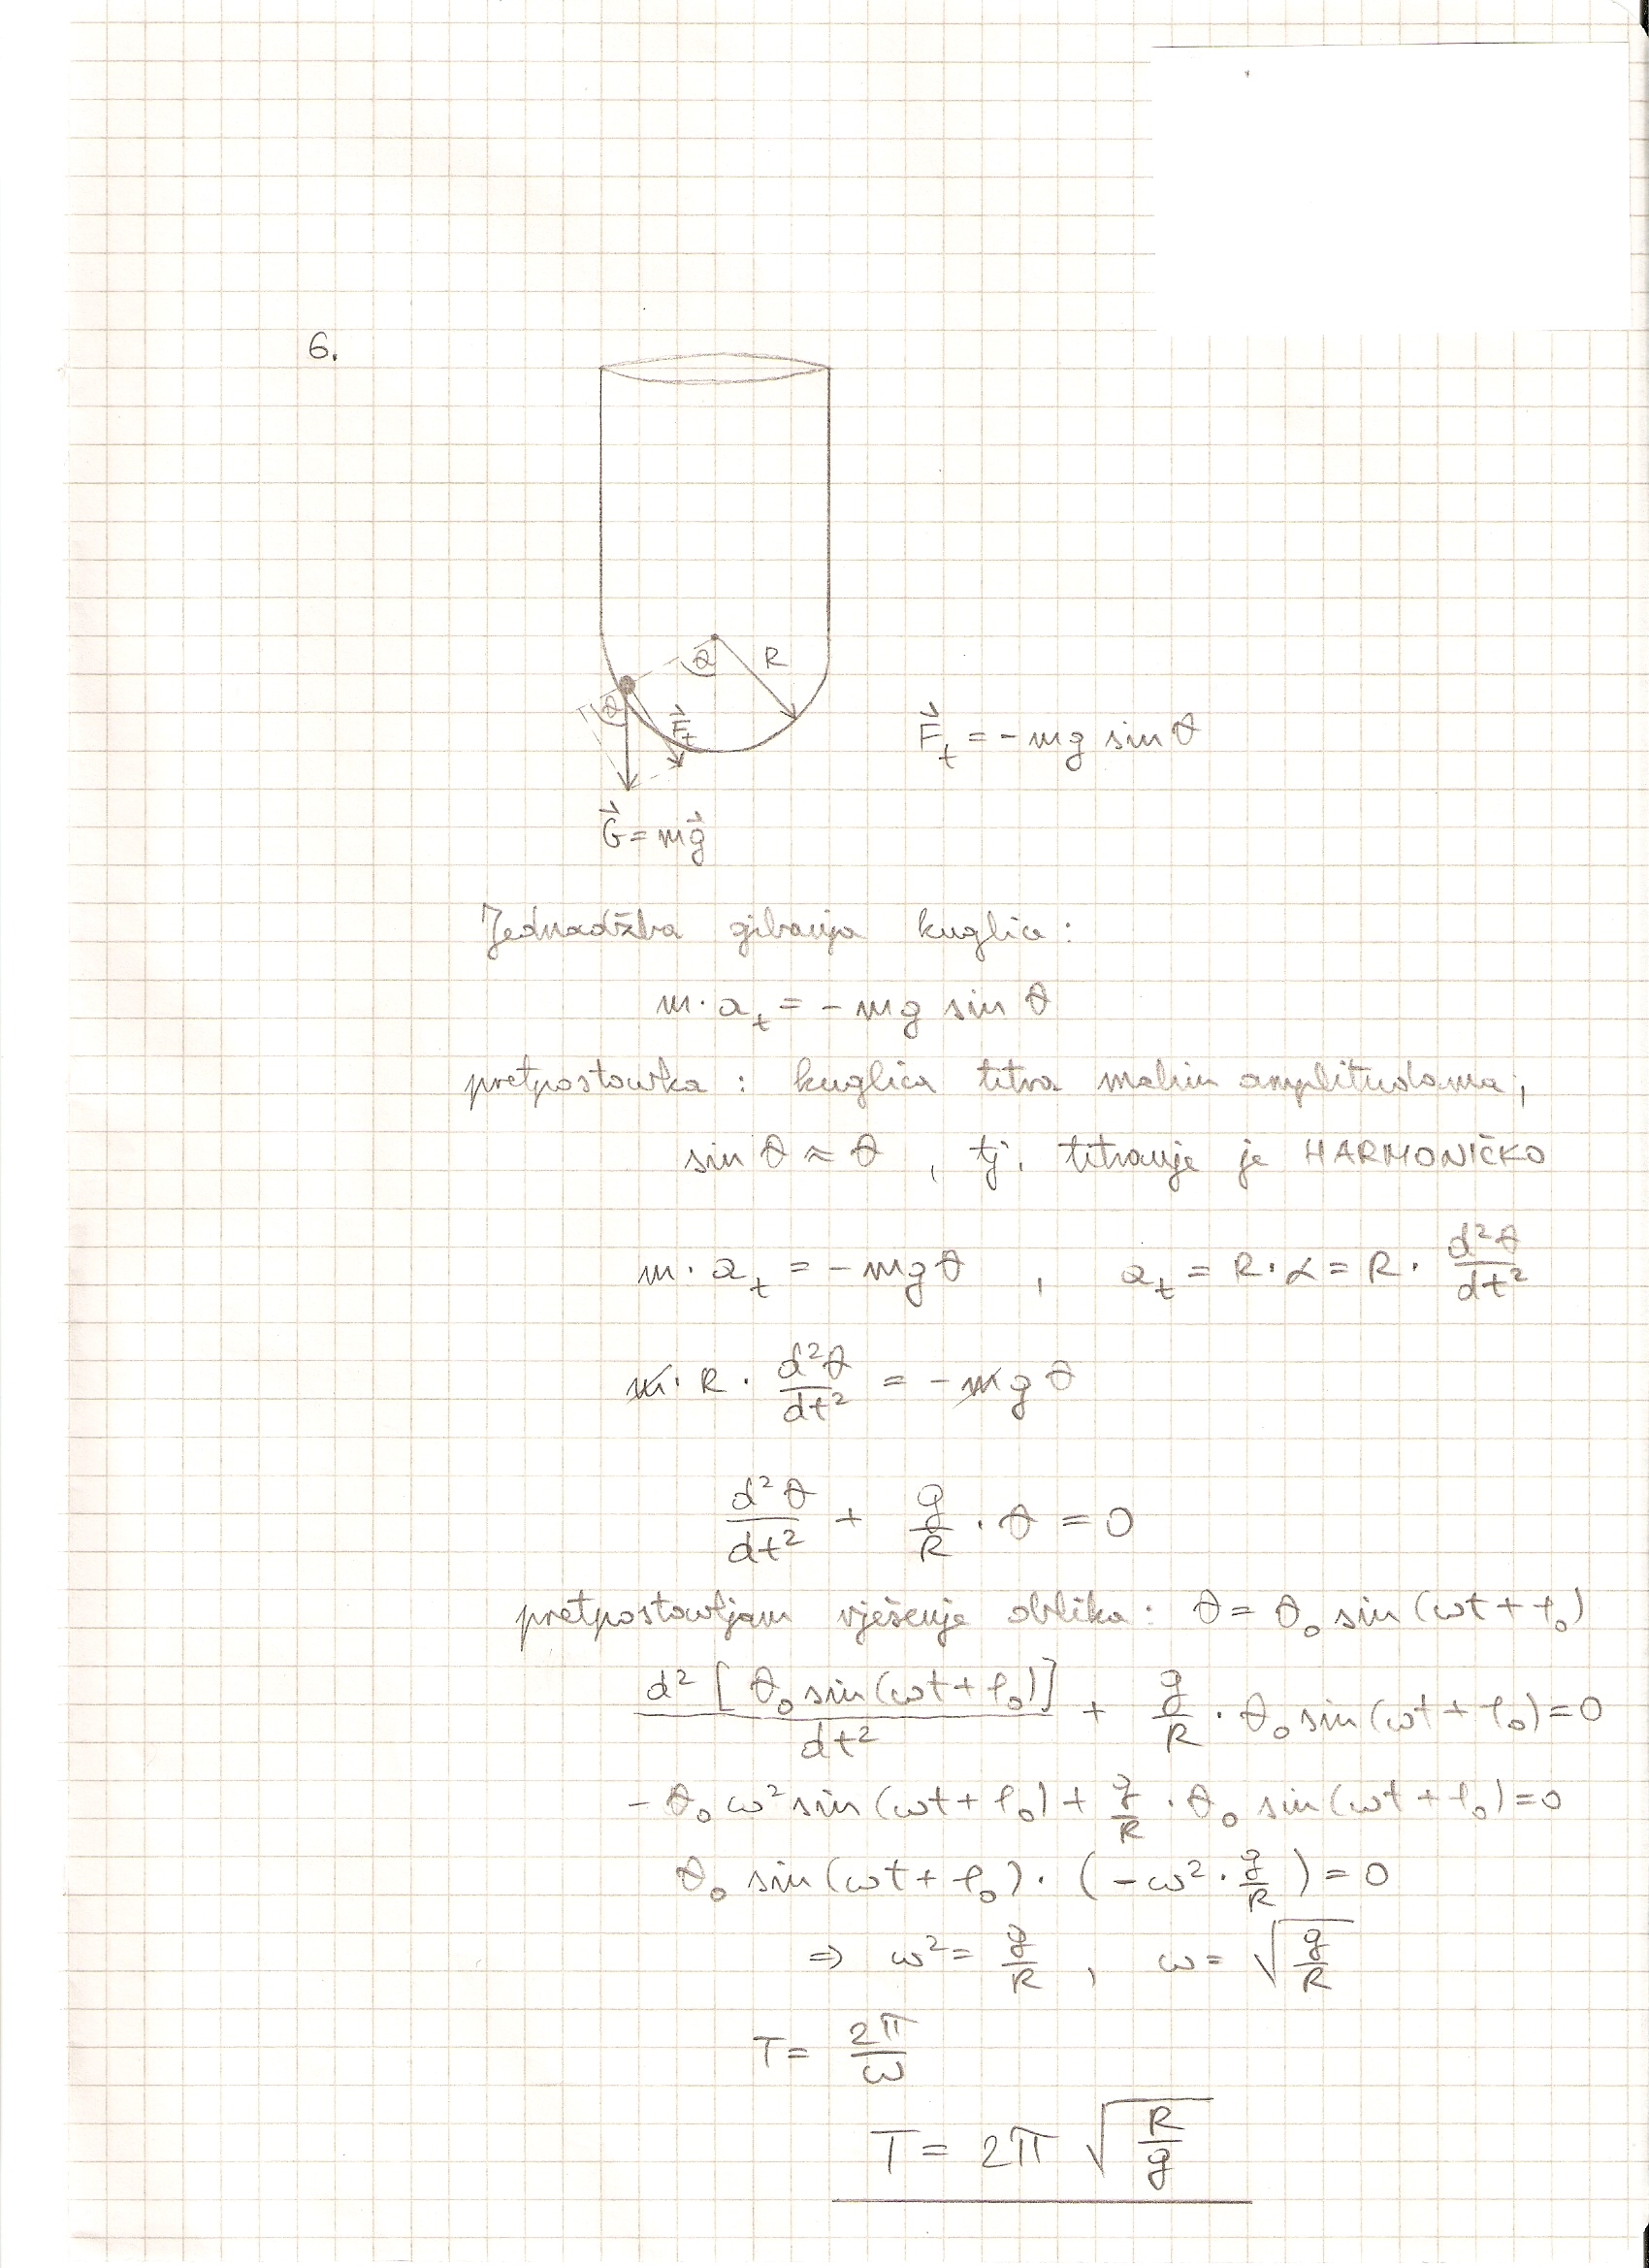 6.
θ R
θ F⃗_t
F⃗_t = - mg sin θ
G⃗ = mg⃗
Jednadžba gibanja kuglice:
m · a_t = - mg sin θ
pretpostavka : kuglica titra malim amplitudama ;
sin θ ≈ θ , tj. titranje je HARMONIČKO
m · a_t = - mg θ , a_t = R · α = R · d²θ/dt²
m · R · d²θ/dt² = - mg θ
d²θ/dt² + g/R · θ = 0
pretpostavljam rješenje oblika : θ = θ₀ sin (ωt + φ₀)
d² [ θ₀ sin (ωt + φ₀) ] / dt² + g/R · θ₀ sin (ωt + φ₀) = 0
- θ₀ ω² sin (ωt + φ₀) + g/R · θ₀ sin (ωt + φ₀) = 0
θ₀ sin (ωt + φ₀) · ( - ω² · g/R ) = 0
⇒ ω² = g/R , ω = √(g/R)
T = 2π/ω
T = 2π √(R/g)